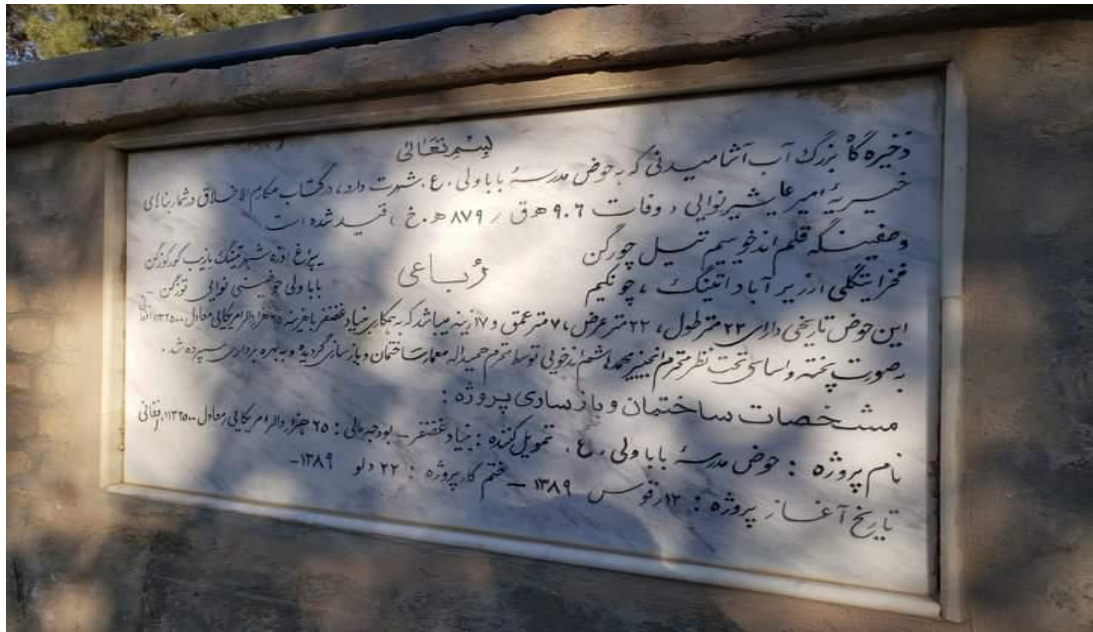 بسم تعالی
ذخیره گاه بزرگ آب آشامیدنی که به حوض مدرسهٔ بابا ولی ، ع ، شهرت دارد ، در کتاب مکارم الاخلاق در شمار بناهای
خیریهٔ امیر علیشیر نوایی ، وفات ۹۰۶ هـ ق / ۸۷۹ هـ . خ ، قید شده است
وصفینگه قلم اندخوییم تیل چورگن
فخر ایتگلی ارزیر آباد اتینگ ، چونکیم
رباعی
بابا ولی حوضینی نوایی توزگن –
این حوض تاریخی دارای ۲۲ متر طول ، ۲۲ متر عرض ، ۷ متر عمق و ۱۷ زینه میباشد که به همکاری بنیاد غضنفر با هزینه ۶۵ هزار دالر امریکایی معادل ۱۱۳۲۵۰۰ افغانی
به صورت پخته و اساسی تحت نظر محترم انجینیر محمد هاشم اندخویی توسط محترم حمیدالله معمار ساختمان و بازسازی گردیده و به بهره برداری سپرده شد .
مشخصات ساختمان و بازسازی پروژه :
نام پروژه : حوض مدرسهٔ بابا ولی ، ع . تمویل کننده : بنیاد غضنفر – بودجه مالی : ۶۵ هزار دالر امریکایی معادل ۱۱۳۲۵۰۰ افغانی
تاریخ آغاز پروژه : ۱۲ / قوس ۱۳۸۹ – ختم کار پروژه : ۲۲ دلو ۱۳۸۹ –